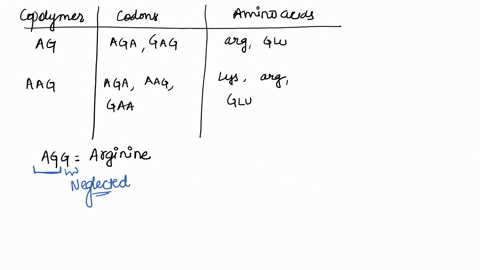 Copolymes Codons Amino acids
AG AGA, GAG arg, GLU
AAG AGA, AAG, GAA Lys, arg, GLU
AGG = Arginine
Neglected